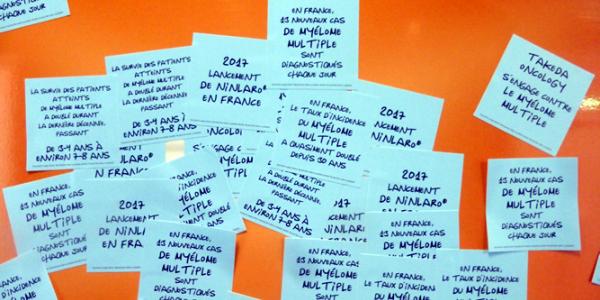 CHAQUE JOUR
EN FRANCE,
13 NOUVEAUX CAS
DE MYÉLOME
MULTIPLE
SONT
DIAGNOSTIQUÉS
CHAQUE JOUR
TAKEDA
ONCOLOGY
S'ENGAGE CONTRE
LE MYÉLOME
MULTIPLE
LA SURVIE DES PATIENTS
ATTEINTS
DE MYÉLOME MULTIPLE
A DOUBLÉ DURANT
LA DERNIÈRE DÉCENNIE,
PASSANT
DE 3-4 ANS À
ENVIRON 7-8 ANS
LA SURVIE DES PATIENTS
ATTEINTS
DE MYÉLOME MULTIPLE
A DOUBLÉ DURANT
LA DERNIÈRE DÉCENNIE,
PASSANT
DE 3-4 ANS À
ENVIRON 7-8 ANS
2017
LANCEMENT
DE NINLARO®
EN FRANCE
EN FRANCE,
LE TAUX D'INCIDENCE
DU MYÉLOME
MULTIPLE
A QUASIMENT DOUBLÉ
DEPUIS 20 ANS
2017
LANCEMENT
DE NINLARO®
EN FRANCE
NINLARO®
FRANCE
MULTIPLE
A DOUBLÉ DURANT
LA DERNIÈRE DÉCENNIE,
PASSANT
DE 3-4 ANS À
ENVIRON 7-8 ANS
2017
LANCEMENT
DE NINLARO®
EN FRANCE
EN FRANCE,
13 NOUVEAUX CAS
DE MYÉLOME
MULTIPLE
SONT
DIAGNOSTIQUÉS
CHAQUE JOUR
EN FRANCE,
13 NOUVEAUX CAS
DE MYÉLOME
MULTIPLE
SONT
DIAGNOSTIQUÉS
CHAQUE JOUR
2017
LANCEMENT
DE NINL
EN FRA
EN FRANCE,
13 NOUVEAUX CAS
DE MYÉLOME
MULTIPLE
SONT
DIAGNOSTIQUÉS
CHAQUE JOUR
EN FRANCE,
13 NOUVEAUX CAS
DE MYÉLOME
MULTIPLE
SONT
DIAGNOSTIQUÉS
EN FRANCE,
13 NOUVEAUX CAS
EN FRANCE,
LE TAUX D'INCIDENCE
DU MYÉLOME
MULTIPLE